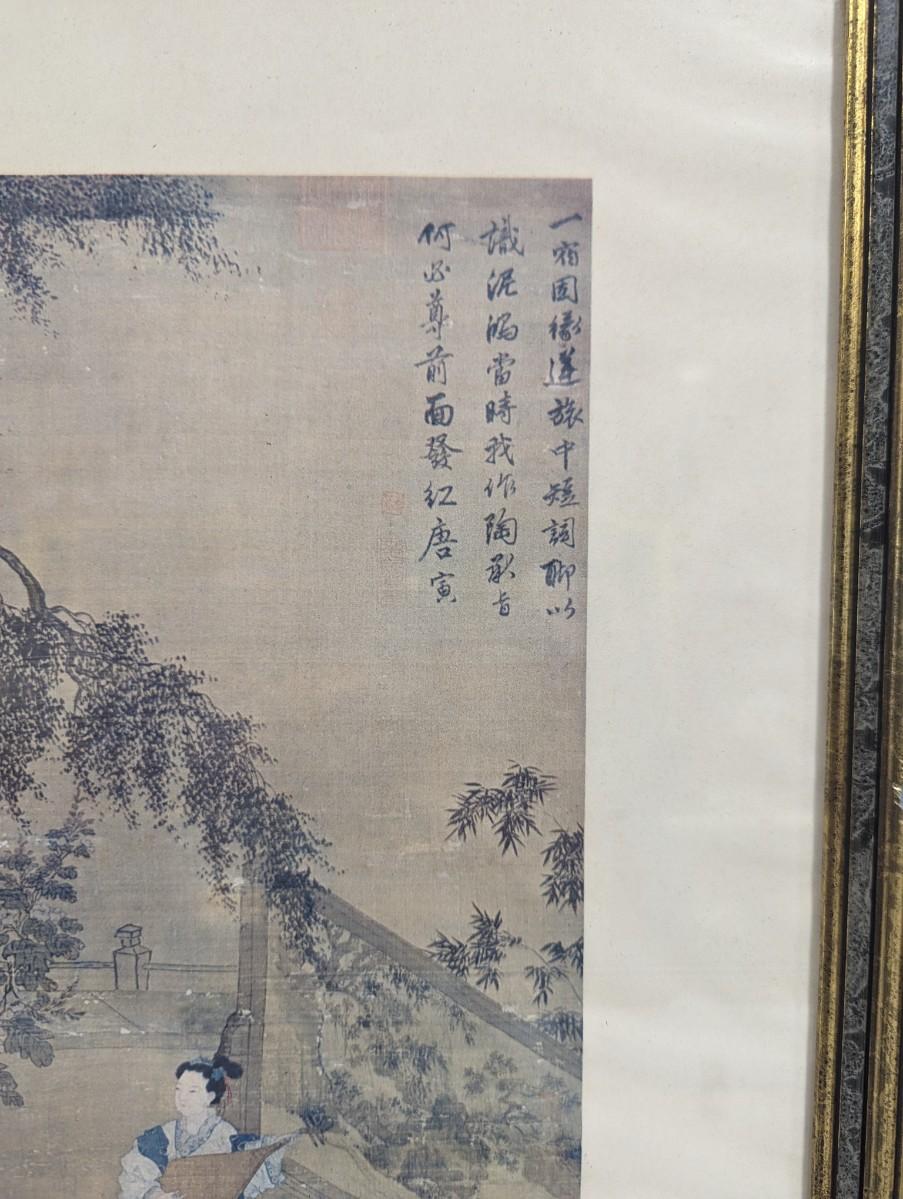 一宿因緣逆旅中短詞聊以
識泥鴻當時我作陶承旨
何必尊前面發紅唐寅